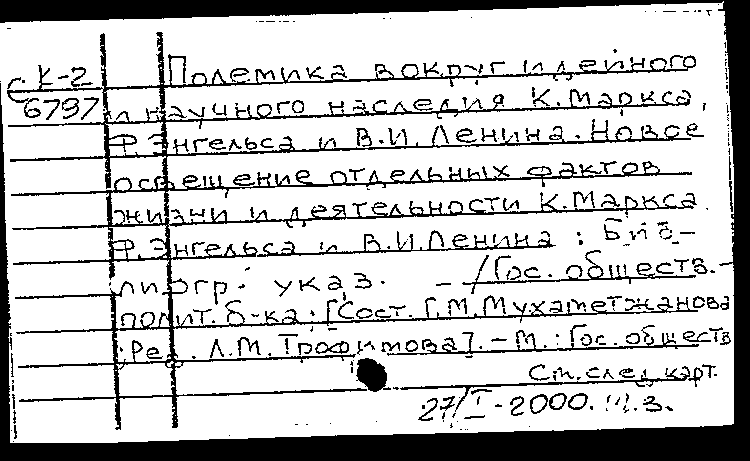 с. К-2
6797
Полемика вокруг идейного
и научного наследия К. Маркса,
Ф. Энгельса и В.И. Ленина. Новое
освещение отдельных фактов
жизни и деятельности К. Маркса
Ф. Энгельса и В.И. Ленина : Биб-
лиогр. указ. - / Гос. обществ.-
полит. б-ка; [Сост. Г.М. Мухаметжанова
; Ред. Л.М. Трофимова]. - М. : Гос. обществ
См. след. карт.
27/I-2000.